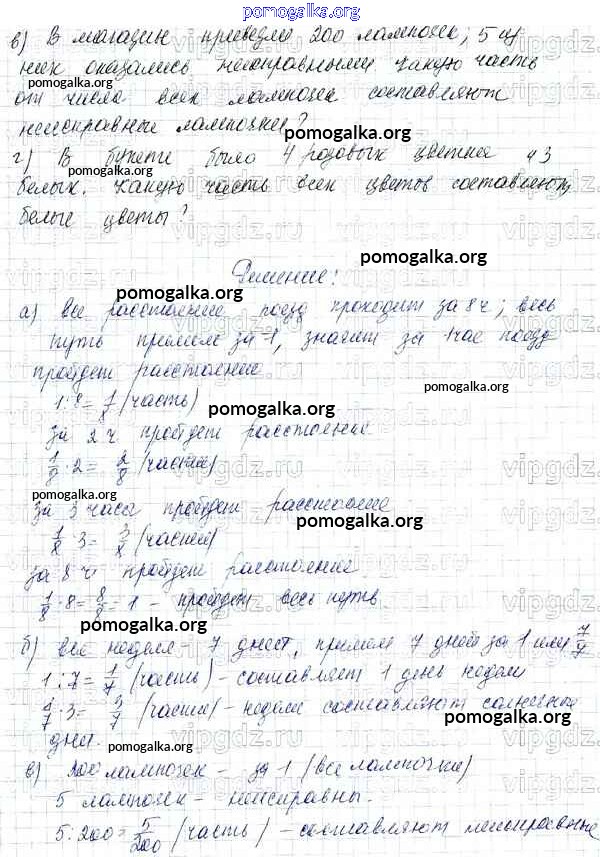 pomogalka.org
в) В магазин привезли 200 лампочек, 5 из
них оказались неисправными. Какую часть
от числа всех лампочек составляют
неисправные лампочки?
pomogalka.org
г) В букете было 4 розовых цветка и 3
белых. Какую часть всех цветов составляют
белые цветы?
pomogalka.org
Решение:
pomogalka.org
а) все расстояние поезд проходит за 8 ч; весь
путь примем за -1, значит за 1 час поезд
пройдет расстояние
pomogalka.org
1:8= 1/8 (часть)
pomogalka.org
за 2 ч пройдет расстояние
1/8 · 2= 2/8 (частей)
pomogalka.org
за 3 часа пройдет расстояние
pomogalka.org
1/8 · 3= 3/8 (частей)
за 8 ч пройдет расстояние
1/8 · 8= 8/8 = 1 - пройдет весь путь
pomogalka.org
б) вся неделя - 7 дней, примем 7 дней за 1 или 7/7
1:7= 1/7 (часть) - составляет 1 день недели
1/7 · 3= 3/7 (части) - недели составляют солнечные
pomogalka.org
дней.
pomogalka.org
в) 200 лампочек - за 1 (все лампочки)
5 лампочек - неисправны.
5:200= 5/200 (часть) - составляют неисправные
pomogalka.org
vipgdz.ru